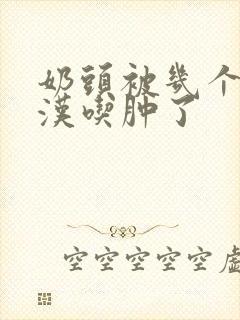 奶頭被幾个
漢喫肿了
空空空空空虛